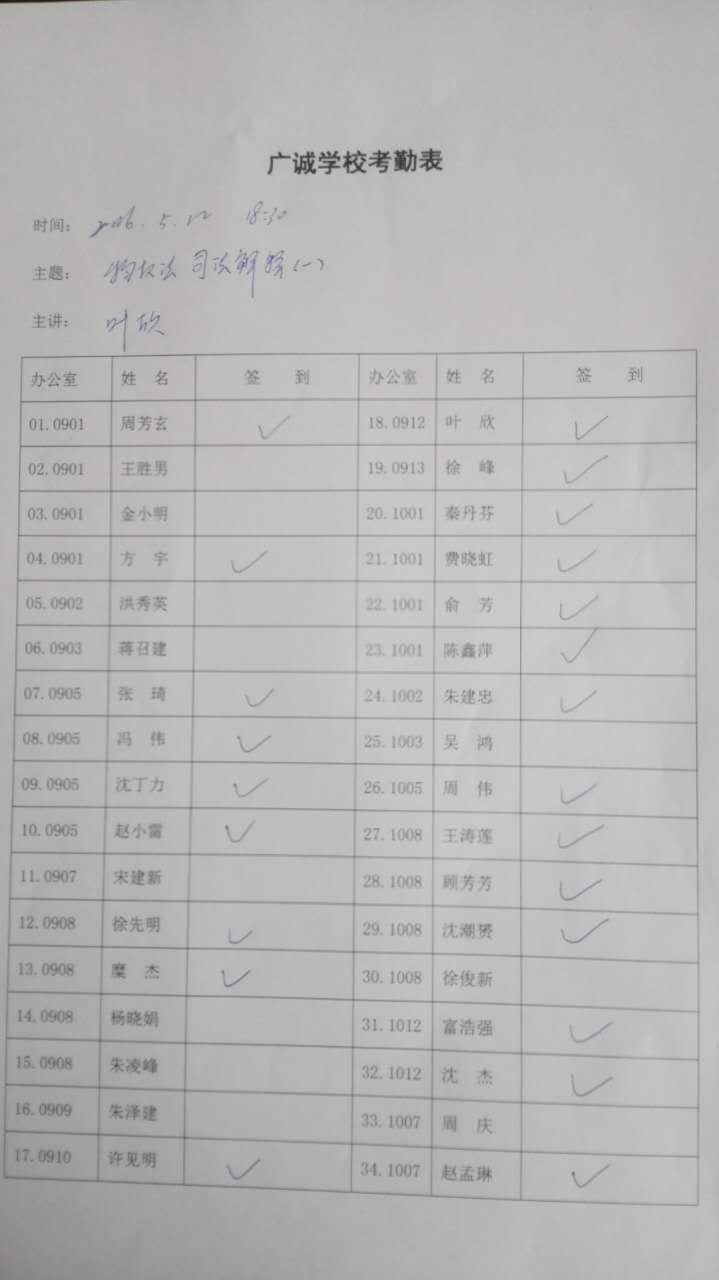 广诚学校考勤表
时间: 2016.5.12 18:30
主题: 物权法司法解释(一)
主讲: 叶欣
办公室 姓 名 签 到 办公室 姓 名 签 到
01.0901 周芳玄 ✓ 18.0912 叶 欣 ✓
02.0901 王胜男 19.0913 徐 峰 ✓
03.0901 金小明 20.1001 秦丹芬 ✓
04.0901 方 宇 ✓ 21.1001 费晓虹 ✓
05.0902 洪秀英 22.1001 俞 芳 ✓
06.0903 蒋召建 23.1001 陈鑫萍 ✓
07.0905 张 琦 ✓ 24.1002 朱建忠 ✓
08.0905 冯 伟 ✓ 25.1003 吴 鸿
09.0905 沈丁力 ✓ 26.1005 周 伟 ✓
10.0905 赵小雷 ✓ 27.1008 王涛莲 ✓
11.0907 宋建新 28.1008 顾芳芳 ✓
12.0908 徐先明 ✓ 29.1008 沈潮赟 ✓
13.0908 糜 杰 ✓ 30.1008 徐俊新
14.0908 杨晓娟 31.1012 富浩强 ✓
15.0908 朱凌峰 32.1012 沈 杰 ✓
16.0909 朱泽建 33.1007 周 庆
17.0910 许见明 ✓ 34.1007 赵孟琳 ✓